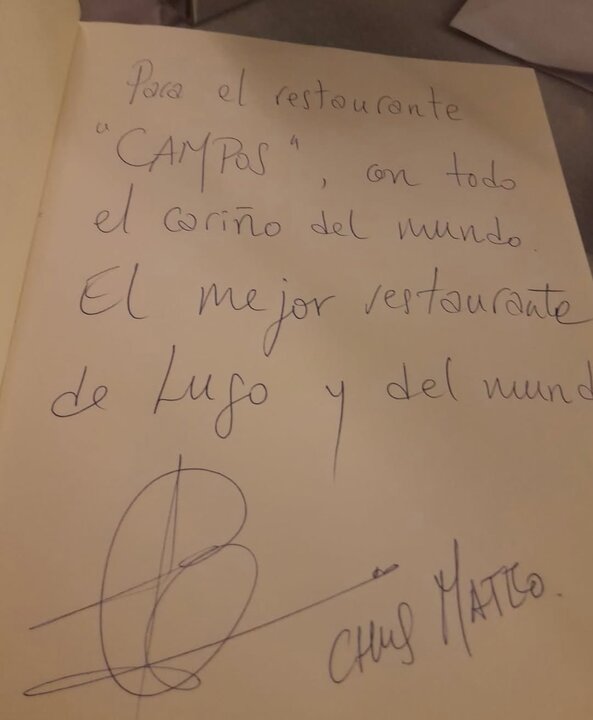 Para el restaurante
"CAMPOS", con todo
el cariño del mundo.
El mejor restaurante
de Lugo y del mund
CHUS MATEO.